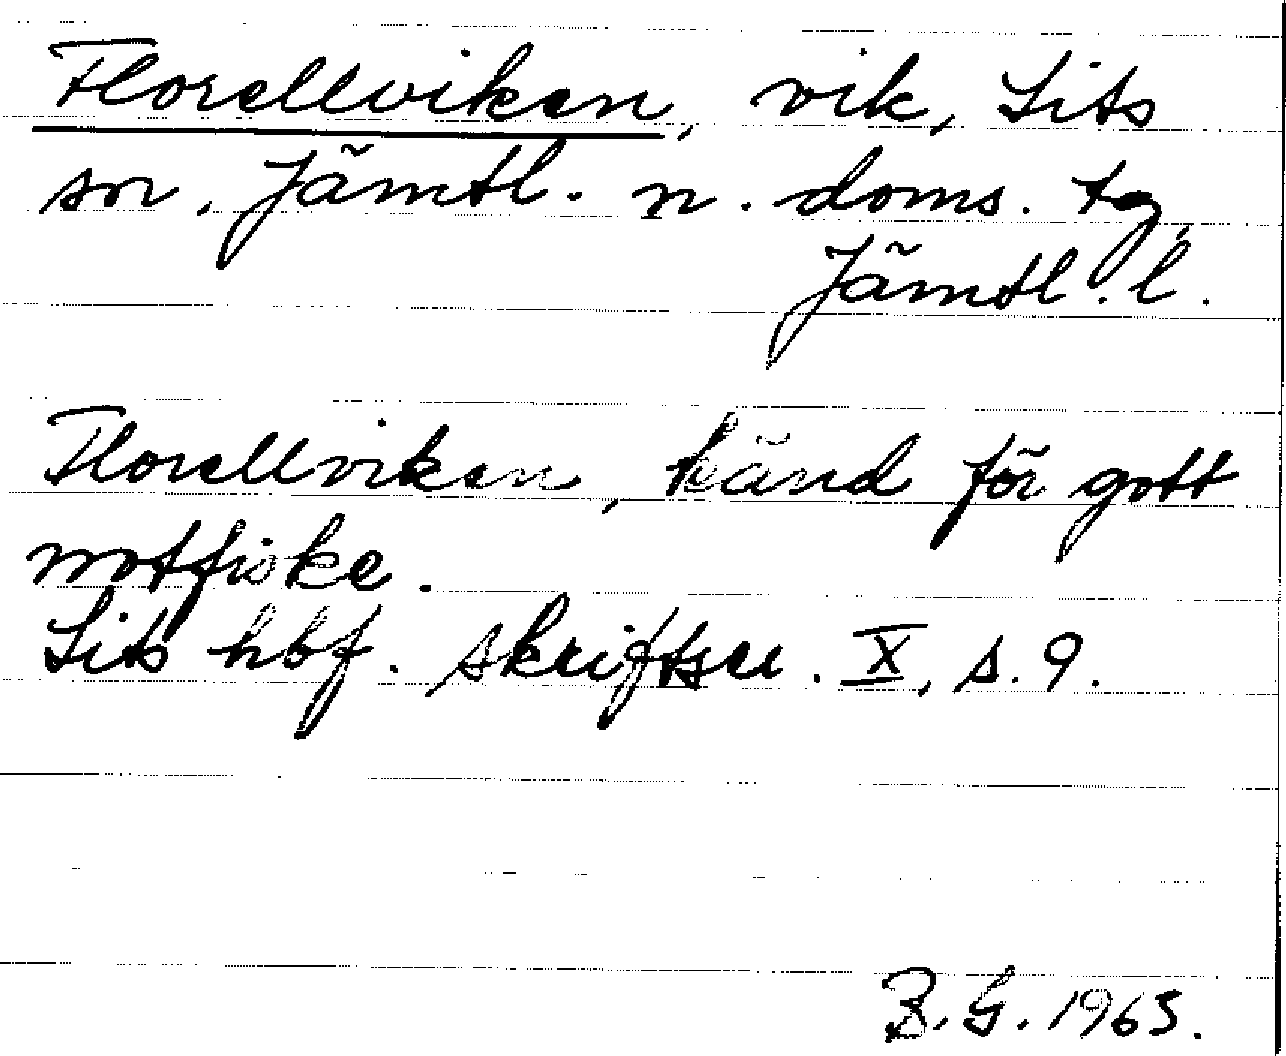 Florellviken, vik, Lits
sn. Jämtl. n. doms. tg,
Jämtl. l.
Florellviken, känd för gott
notfiske.
Lits hbf. skriftser. X, s. 9.
B. G. 1965.